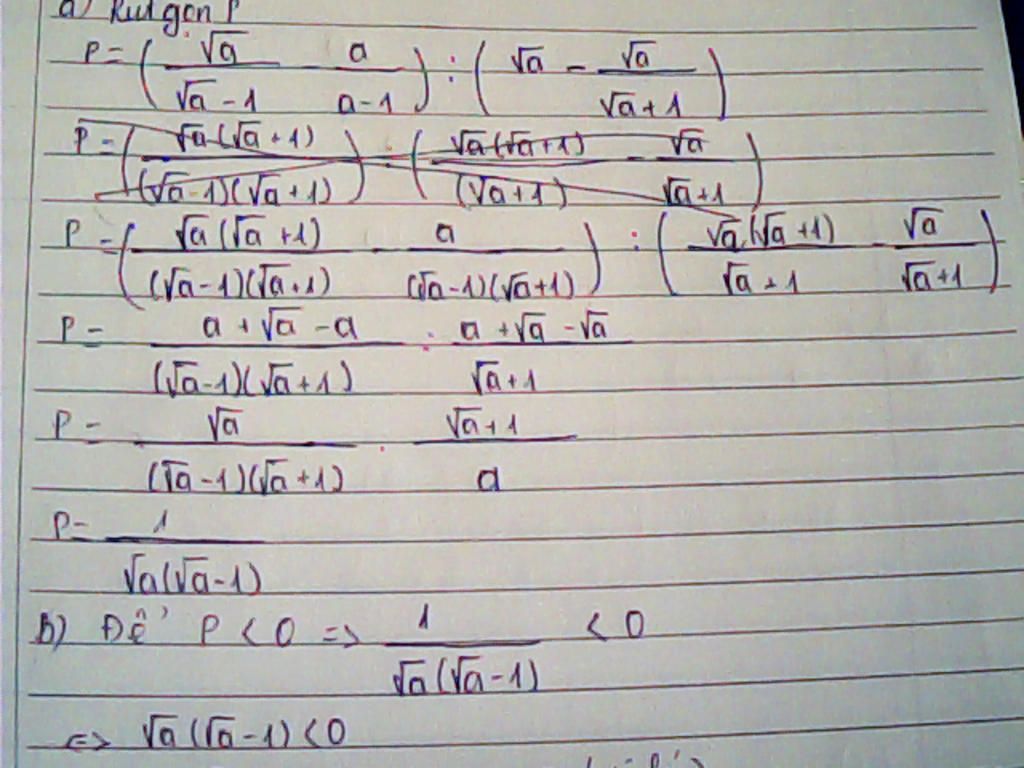 a) Rút gọn P
P = (√a/(√a-1) - a/(a-1)) : (√a - √a/(√a+1))
P = (√a(√a+1)/((√a-1)(√a+1))) : (√a(√a+1)/(√a+1) - √a/(√a+1))
P = (√a(√a+1)/((√a-1)(√a+1)) - a/((√a-1)(√a+1))) : (√a(√a+1)/(√a+1) - √a/(√a+1))
P = (a+√a-a)/((√a-1)(√a+1)) : (a+√a-√a)/(√a+1)
P = √a/((√a-1)(√a+1)) . (√a+1)/a
P = 1/(√a(√a-1))
b) Để P < 0 => 1/(√a(√a-1)) < 0
<=> √a(√a-1) < 0